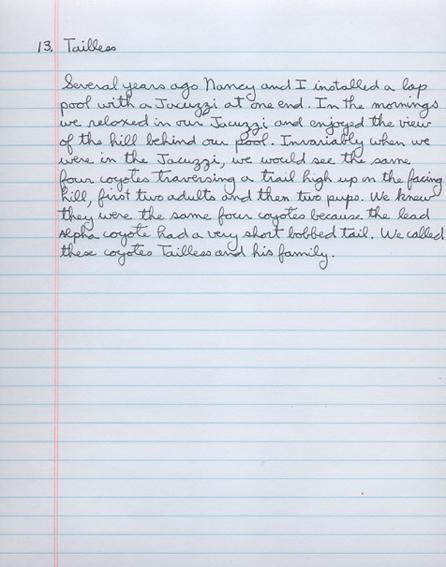 13. Tailless
Several years ago Nancy and I installed a lap
pool with a Jacuzzi at one end. In the mornings
we relaxed in our Jacuzzi and enjoyed the view
of the hill behind our pool. Invariably when we
were in the Jacuzzi, we would see the same
four coyotes traversing a trail high up on the facing
hill, first two adults and then two pups. We knew
they were the same four coyotes because the lead
Alpha coyote had a very short bobbed tail. We called
these coyotes Tailless and his family.